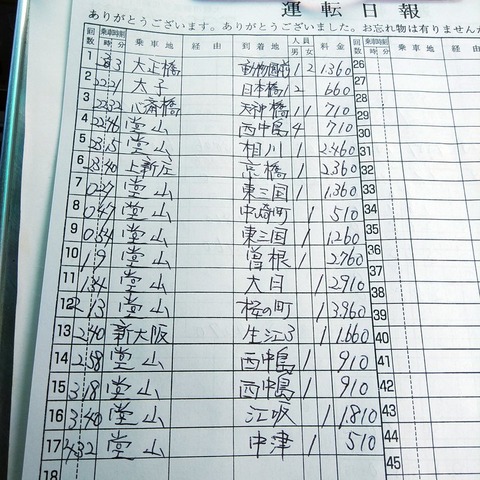 運転日報
ありがとうございます。ありがとうございました。お忘れ物は有りません
回数 乗車時刻 時 分 乗車地 経由 到着地 人員 男 女 料金 回数
1 大正橋 動物園前 1 2 1360 26
2 22 21 太子 日本橋 2 660 27
3 22 32 心斎橋 天神橋 1 1 710 28
4 22 46 堂山 西中島 4 710 29
5 23 15 堂山 相川 1 2460 30
6 23 40 上新庄 高橋 1 2360 31
7 0 27 堂山 東三国 1 1,360 32
8 0 47 堂山 中崎町 1 510 33
9 0 54 堂山 東三国 1 1,260 34
10 1 9 堂山 曽根 1 2760 35
11 1 34 堂山 大日 1 2910 36
12 2 13 堂山 桜の町 1 3,960 37
13 2 40 新大阪 生江3 1 1,660 38
14 2 58 堂山 西中島 1 910 39
15 3 18 堂山 西中島 1 910 40
16 3 40 堂山 江坂 1 1,810 41
17 4 32 堂山 中津 1 510 42
18 43
44
45